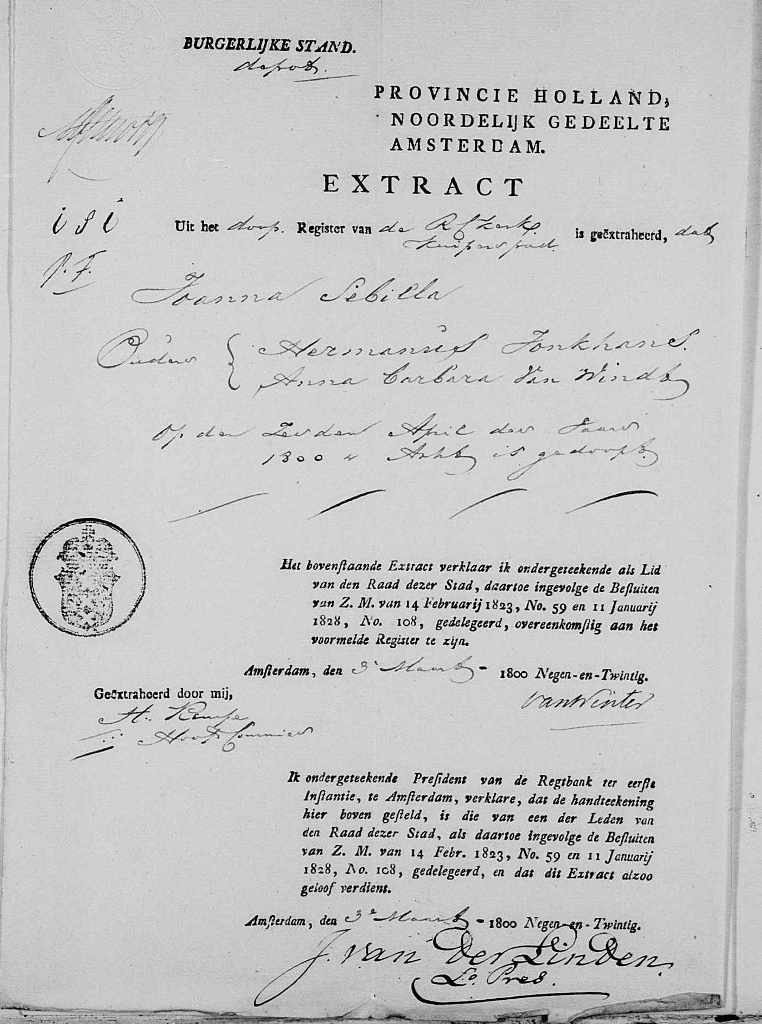 BURGERLIJKE STAND.
depot.
PROVINCIE HOLLAND,
NOORDELIJK GEDEELTE
AMSTERDAM.
EXTRACT
Uit het doop. Register van de R C Kerk is geëxtraheerd, dat
Joanna Sebilla
Ouders
Hermanus Jonkhans.
Anna Barbara Van Windt
Op den April des Jaars
1800 Acht is gedoopt.
Het bovenſtaande Extract verklaar ik ondergeteekende als Lid
van den Raad dezer Stad, daartoe ingevolge de Beſluiten
van Z. M. van 14 Februarij 1823, No. 59 en 11 Januarij
1828, No. 108, gedelegeerd, overeenkomſtig aan het
voormelde Register te zijn.
Amſterdam, den 3e Maart - 1800 Negen-en-Twintig.
Geëxtraheerd door mij,
van Winter
H. Kempe
Hoofd Commies
Ik ondergeteekende Preſident van de Regtbank ter eerſte
Inſtantie, te Amſterdam, verklare, dat de handteekening
hier boven geſteld, is die van een der Leden van
den Raad dezer Stad, als daartoe ingevolge de Beſluiten
van Z. M. van 14 Febr. 1823, No. 59 en 11 Januarij
1828, No. 108, gedelegeerd, en dat dit Extract alzoo
geloof verdient.
Amſterdam, den 3e Maart - 1800 Negen-en-Twintig.
J. van Der Linden.
Lo. Pres.